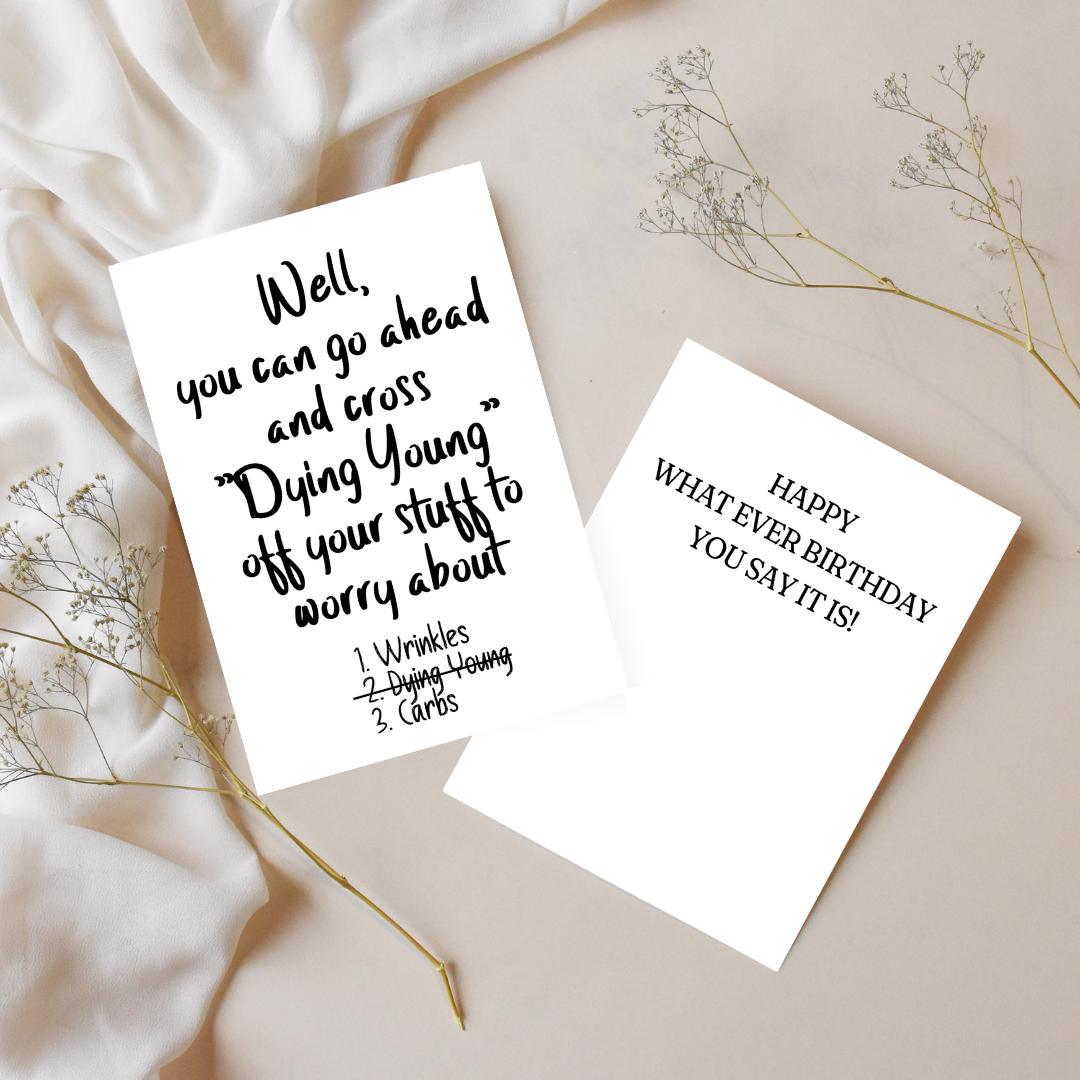 Well,
you can go ahead
and cross
”Dying Young”
off your stuff to
worry about
1. Wrinkles
2. Dying Young
3. Carbs
HAPPY
WHAT EVER BIRTHDAY
YOU SAY IT IS!